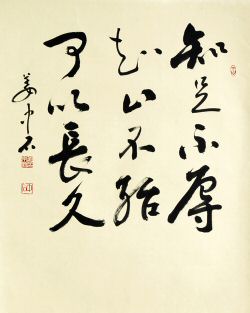 知足不辱
知止不殆
可以長久